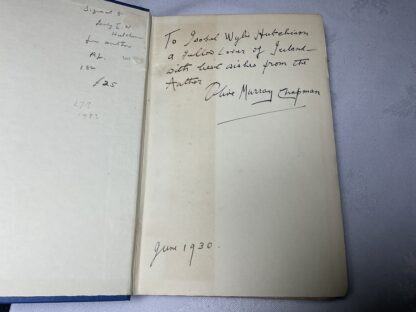 Signed &
Lady I. W
Hutchison
from author
£25
To Isobel Wylie Hutchison
a fellow lover of Iceland –
with best wishes from the
Author
Olive Murray Chapman
June 1930.